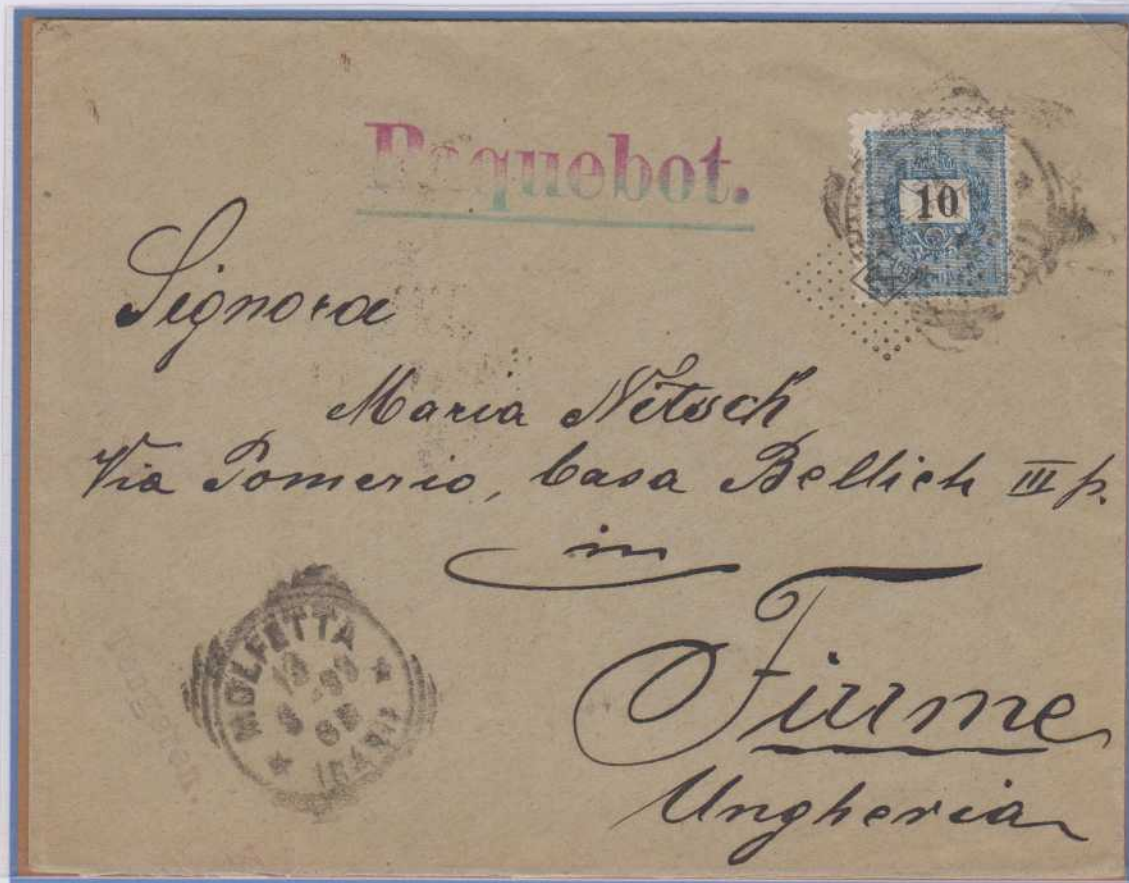 Paquebot.
10
Signora
Maria Nitsch
Via Pomerio, Casa Bellich III p.
in
Fiume
Ungheria
MOLFETTA
(BARI)